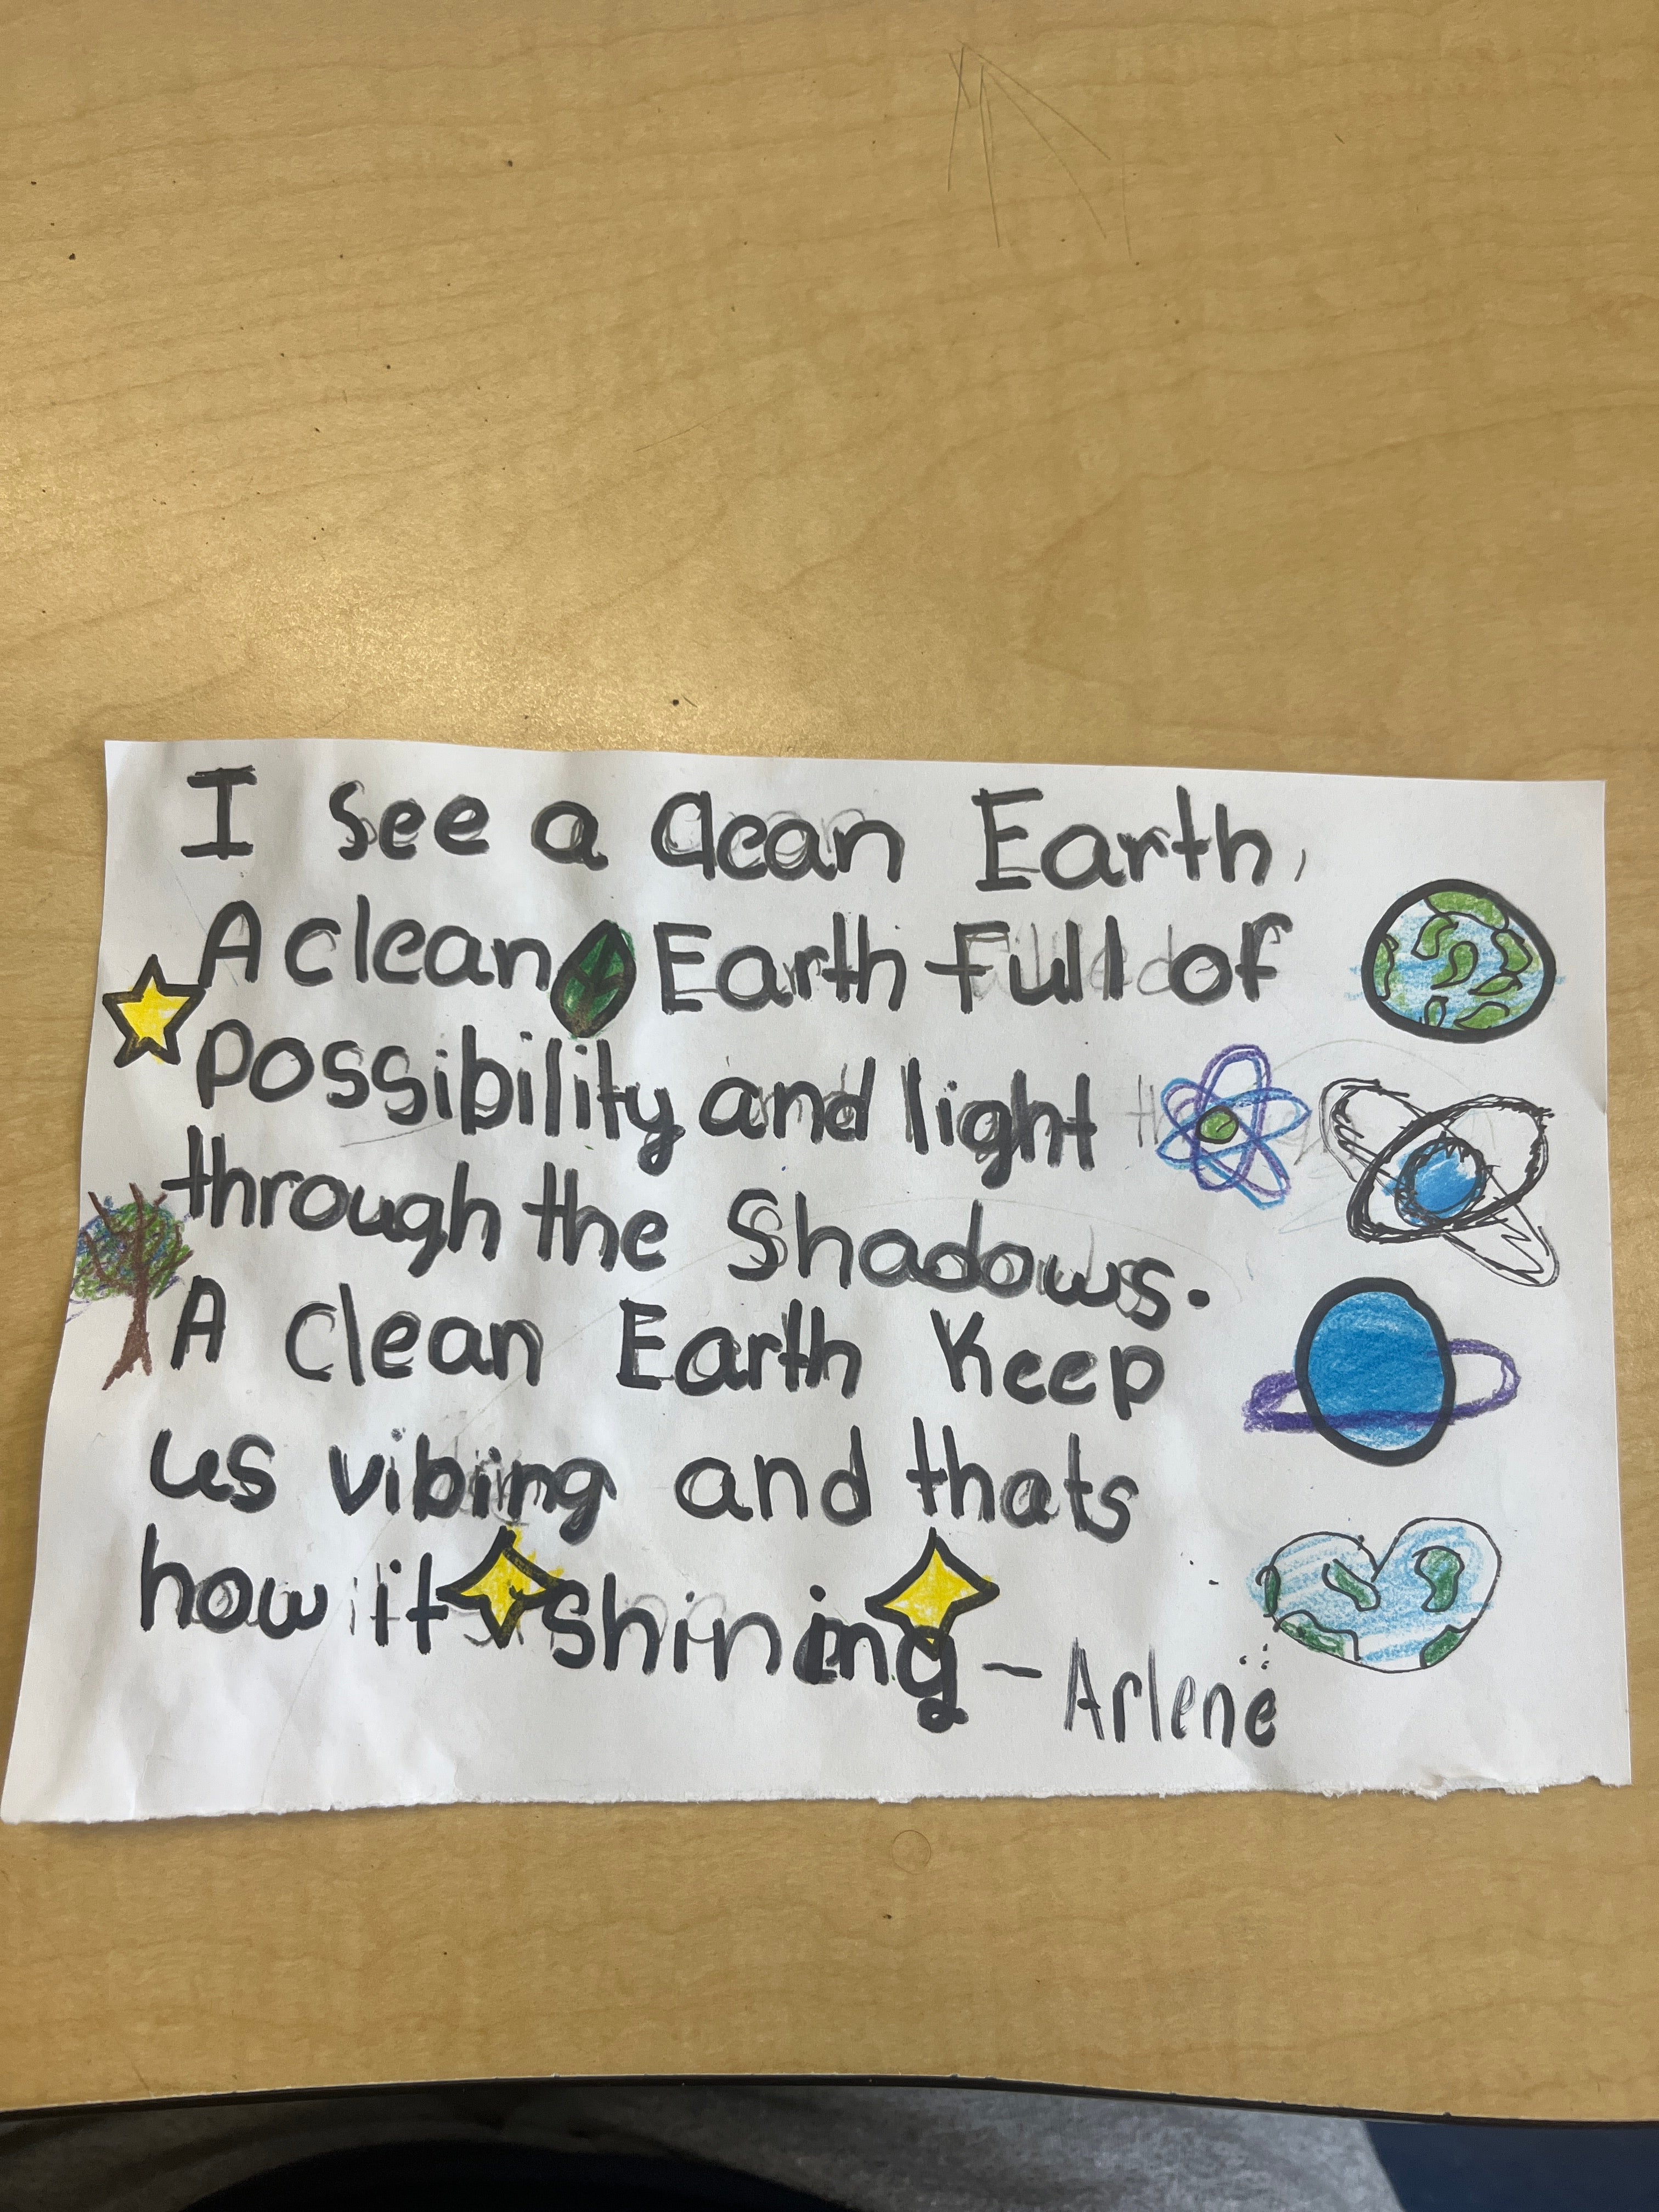 I see a clean Earth,
A clean Earth Full of
Possibility and light
through the Shadows.
A clean Earth Keep
us vibing and thats
how it shining - Arlene